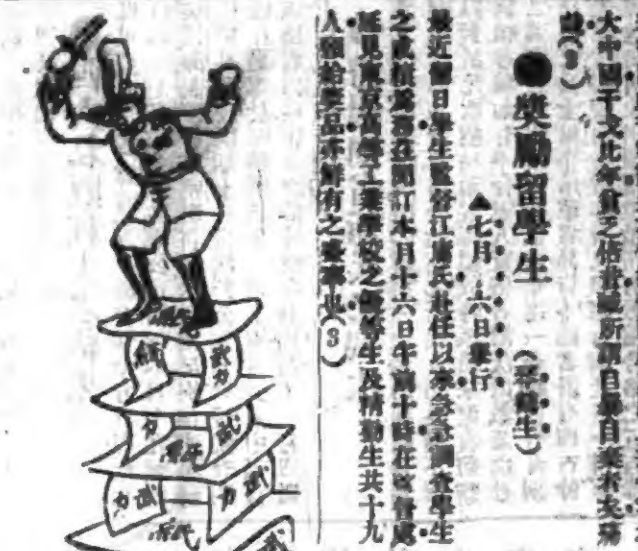 大中國干戈比年貧乏借書所謂自暴自棄者矣
(3)
●獎勵留學生
(琴鶴生)
▲七月十六日舉行
最近留日學生監督江庸氏赴任以來急急調查學生
之成績為務茲聞訂本月十六日午前十時在監督處
延見東京高等工業學校之優等生及精勤生共十九
人頒給獎品亦鮮有之盛舉也(3)
武力
武
力
武力
武力
武